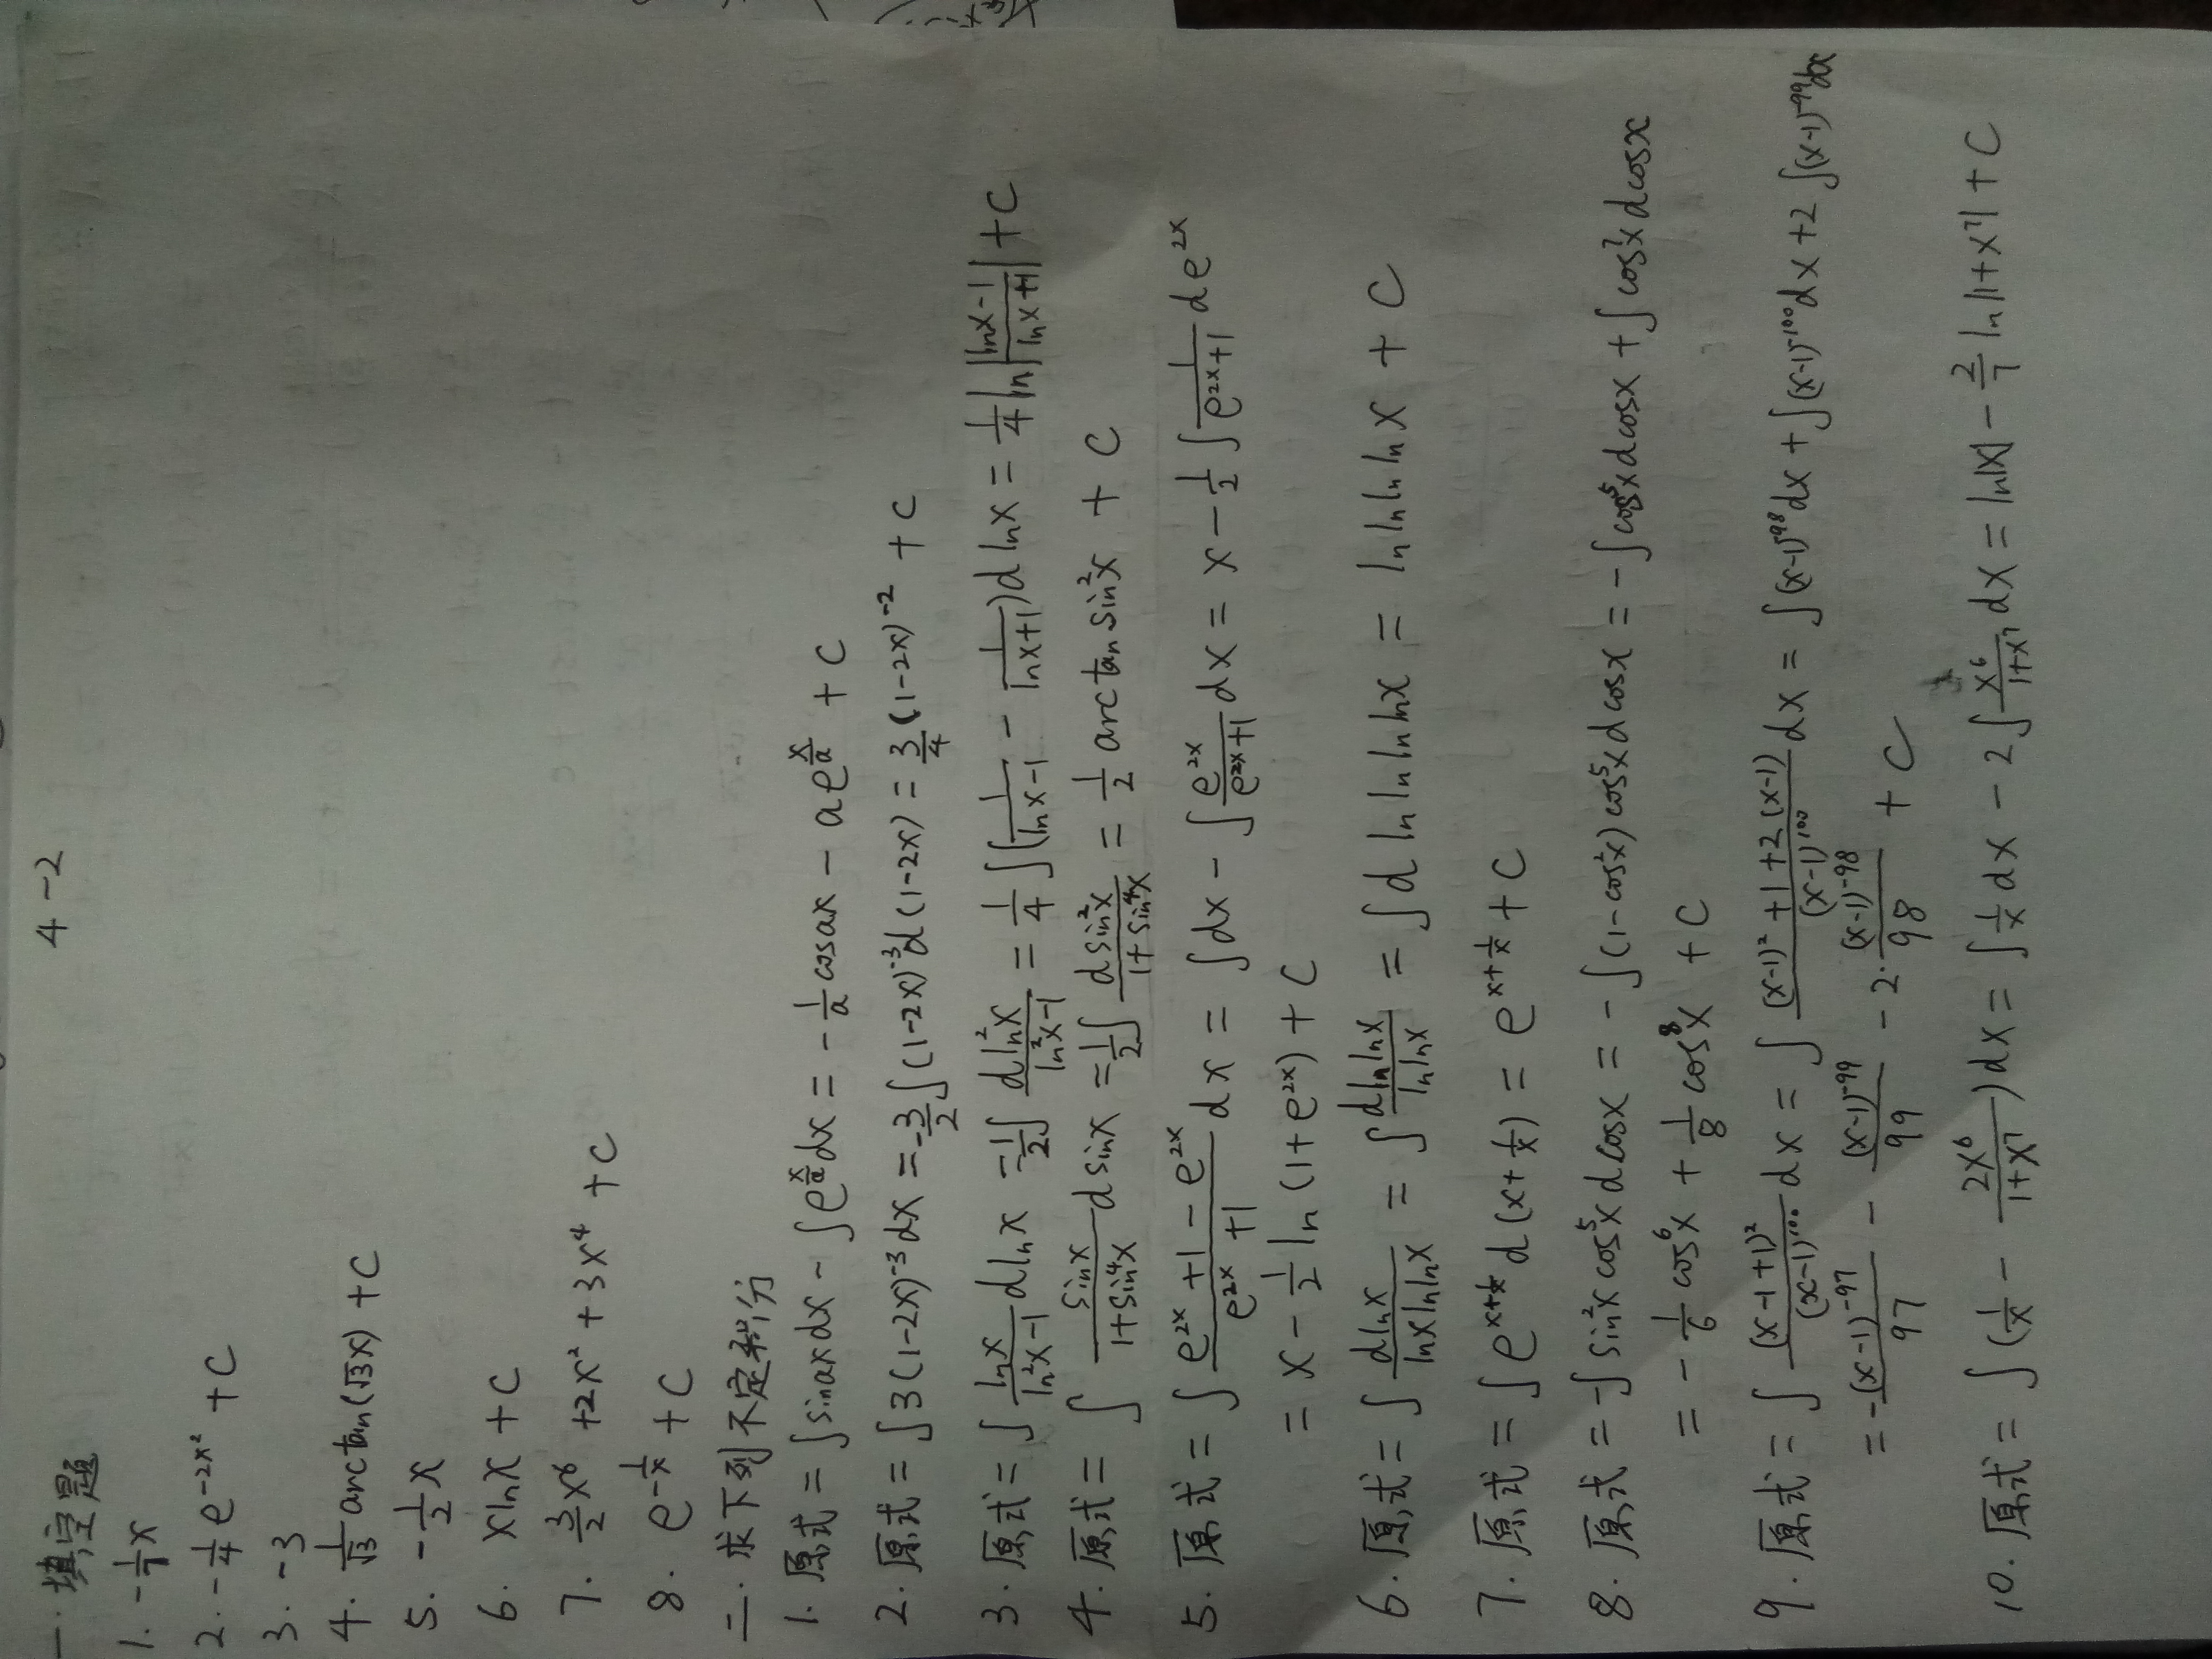 4-2
一. 填空题
1. -1/7 x
2. -1/4 e^(-2x²) + C
3. -3
4. 1/√3 arctan(√3x) + C
5. -1/2 x
6. xlnx + C
7. 3/2 x⁶ + 2x² + 3x⁴ + C
8. e^(-1/x) + C
二. 求下列不定积分
1. 原式 = ∫sinaxdx - ∫e^(x/a)dx = -1/a cosax - ae^(x/a) + C
2. 原式 = ∫3(1-2x)⁻³dx = -3/2 ∫(1-2x)⁻³d(1-2x) = 3/4 (1-2x)⁻² + C
3. 原式 = ∫ lnx/(ln²x-1) dlnx = 1/2 ∫ dln²x/(ln²x-1) = 1/4 ∫(1/(lnx-1) - 1/(lnx+1))dlnx = 1/4 ln|(lnx-1)/(lnx+1)| + C
4. 原式 = ∫ sinx/(1+sin⁴x) dsinx = 1/2 ∫ dsin²x/(1+sin⁴x) = 1/2 arctansin²x + C
5. 原式 = ∫ (e^(2x)+1-e^(2x))/(e^(2x)+1) dx = ∫dx - ∫ e^(2x)/(e^(2x)+1) dx = x - 1/2 ∫ 1/(e^(2x)+1) de^(2x)
= x - 1/2 ln(1+e^(2x)) + C
6. 原式 = ∫ dlnx/(lnxlnlnx) = ∫ dlnlnx/(lnlnx) = ∫d lnlnlnlnx = lnlnlnlnx + C
7. 原式 = ∫e^(x+1/x) d(x+1/x) = e^(x+1/x) + C
8. 原式 = -∫sin²xcos⁵xdcosx = -∫(1-cos²x)cos⁵xdcosx = -∫cos⁵xdcosx + ∫cos⁷xdcosx
= -1/6 cos⁶x + 1/8 cos⁸x + C
9. 原式 = ∫ (x-1+1)²/(x-1)¹⁰⁰ dx = ∫ ((x-1)²+1+2(x-1))/(x-1)¹⁰⁰ dx = ∫(x-1)⁻⁹⁸dx + ∫(x-1)⁻¹⁰⁰dx + 2∫(x-1)⁻⁹⁹dx
= -(x-1)⁻⁹⁷/97 - (x-1)⁻⁹⁹/99 - 2·(x-1)⁻⁹⁸/98 + C
10. 原式 = ∫(1/x - 2x⁶/(1+x⁷))dx = ∫1/x dx - 2∫ x⁶/(1+x⁷) dx = ln|x| - 2/7 ln|1+x⁷| + C